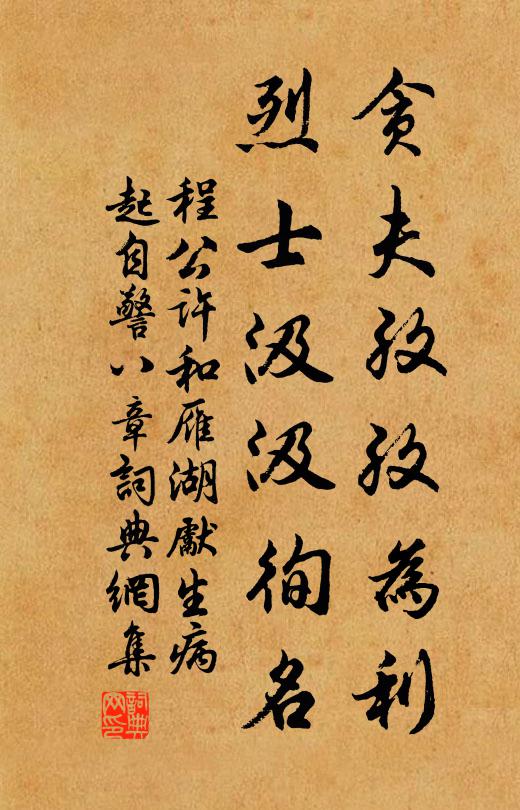 貪夫孜孜為利
烈士汲汲徇名
程公許和雁湖獻生病
起自警八章詞典網集
詞典網印